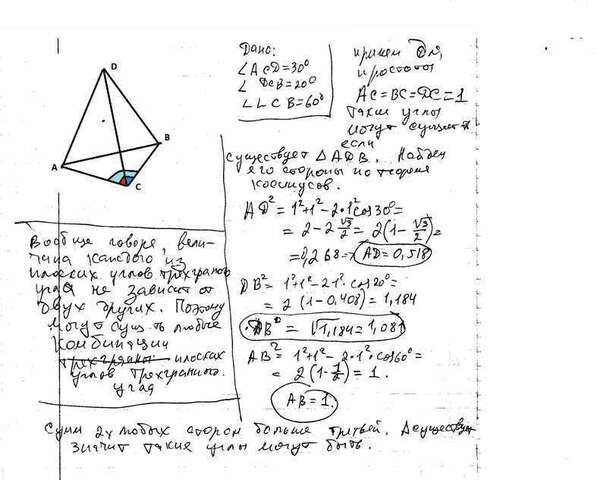 D
A
B
C
Дано:
∠ACD=30°
∠ DCB=20°
∠LCB=60°
примем для
простоты
AC=BC=DC=1
Такие углы
могут
если
Существует △ADB. Найдем
его стороны по теореме
косинусов.
AD²= 1²+1²-2·1²cos30°=
= 2-2√3/2 = 2(1-√3/2)=
=0,268 AD=0,518
DB²= 1²+1²-2·1²·cos20°=
= 2(1-0,408)=1,184
DB = √1,184=1,081
AB²= 1²+1²-2·1²·cos60°=
= 2(1-1/2)=1.
AB=1.
Вообще говоря, вели-
чина каждого из
плоских углов трехгранного
угла не зависит от
двух других. Поэтому
могут сущ-ть любые
комбинации
трехгранных плоских
углов трехгранного.
угла
Сумм 2х любых сторон больше третьей. △существует
значит такие углы могут быть.